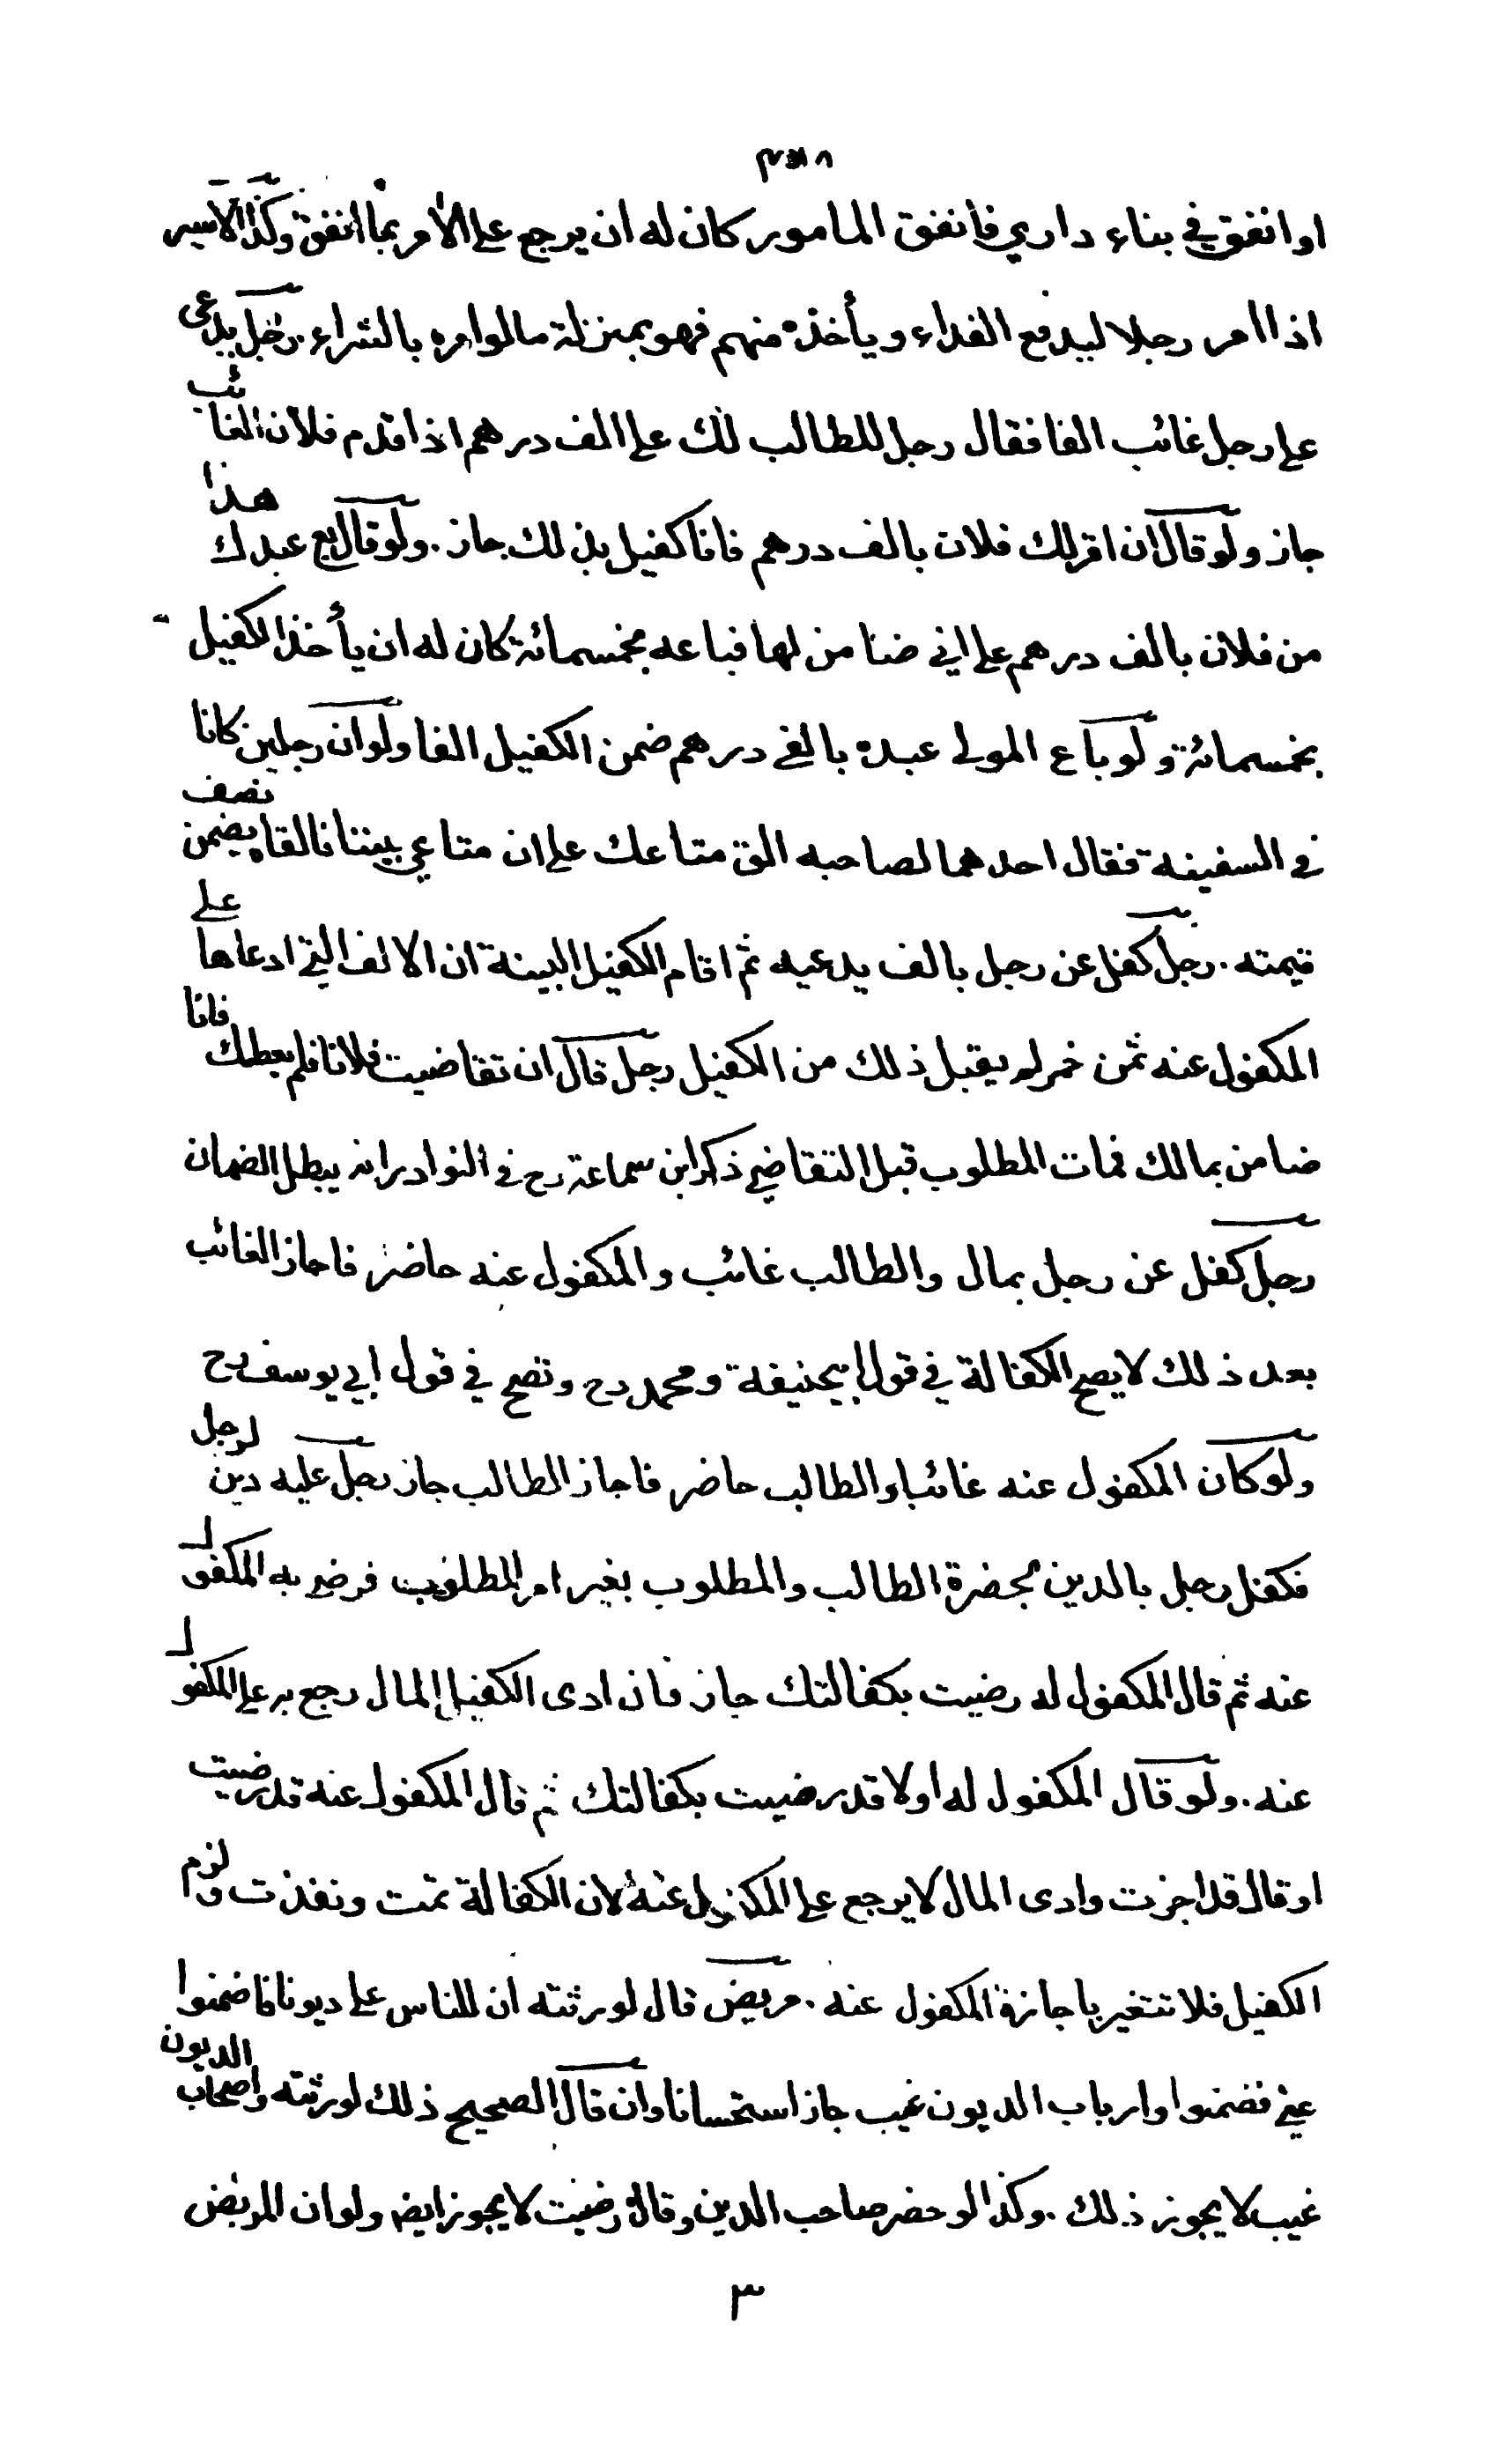 او انفق في بناء داري فأنفق المامور كان له ان يرجع على الآمر بما انفق وكذا الاسير
اذا امر رجلا ليدفع الفداء ويأخذه منهم فهو بمنزلة مالو امره بالشراء . رجل يدعى
على رجل غائب الفا فقال رجل للطالب لك على الف درهم اذا قدم فلان الغائب
جاز ولو قال ان اقر لك فلان بالف درهم فانا كفيل بذلك جاز . ولو قال بع عبدك هذا
من فلان بالف درهم على اني ضامن لها فباعه بخمسمائة كان له ان يأخذ الكفيل
بخمسمائة ولو باع المولى عبده بالفي درهم ضمن الكفيل الفا ولو ان رجلين كانا
في السفينة فقال احدهما لصاحبه الق متاعك على ان متاعي بيننا فالقاه يضمن نصف
قيمته . رجل كفل عن رجل بالف يدعيه ثم اقام الكفيل البينة ان الالف التي ادعاها على
المكفول عنه ثمن خمر لم يقبل ذلك من الكفيل رجل قال ان تقاضيت فلانا فلم يعطك فانا
ضامن بمالك فمات المطلوب قبل التقاضي ذكر ابن سماعة رح في النوادر انه يبطل الضمان
رجل كفل عن رجل بمال والطالب غائب والمكفول عنه حاضر فاجاز الغائب
بعد ذلك لا يصح الكفالة في قول ابيحنيفة ومحمد رح وتصح في قول ابي يوسف رح
ولو كان المكفول عنه غائبا والطالب حاضر فاجاز الطالب جاز رجل عليه دين لرجل
فكفل رجل بالدين بحضرة الطالب والمطلوب بغير امر المطلوب فرضي به المكفول
عنه ثم قال المكفول له رضيت بكفالتك جاز فان ادى الكفيل المال رجع به على المكفول
عنه . ولو قال المكفول له اولا قد رضيت بكفالتك ثم قال المكفول عنه قد رضيت
او قال قد اجزت وادى المال لا يرجع على المكفول عنه لان الكفالة تمت ونفذت ولزم
الكفيل فلا تتغير باجازة المكفول عنه . مريض قال لورثته ان للناس على ديونا فاضمنوا
عني فضمنوا وارباب الديون غيب جاز استحسانا وان قال الصحيح ذلك لورثته واصحاب الديون
غيب لا يجوز ذلك . وكذا لو حضر صاحب الدين وقال رضيت لا يجوز ايضا ولو ان المريض
٣